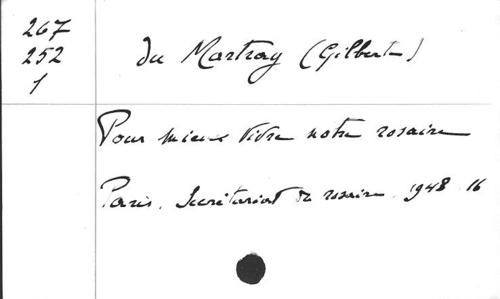 267
252
1
du Martray (Gilbert)
Pour mieux vivre notre rosaire
Paris, Secrétariat du rosaire, 1948 16